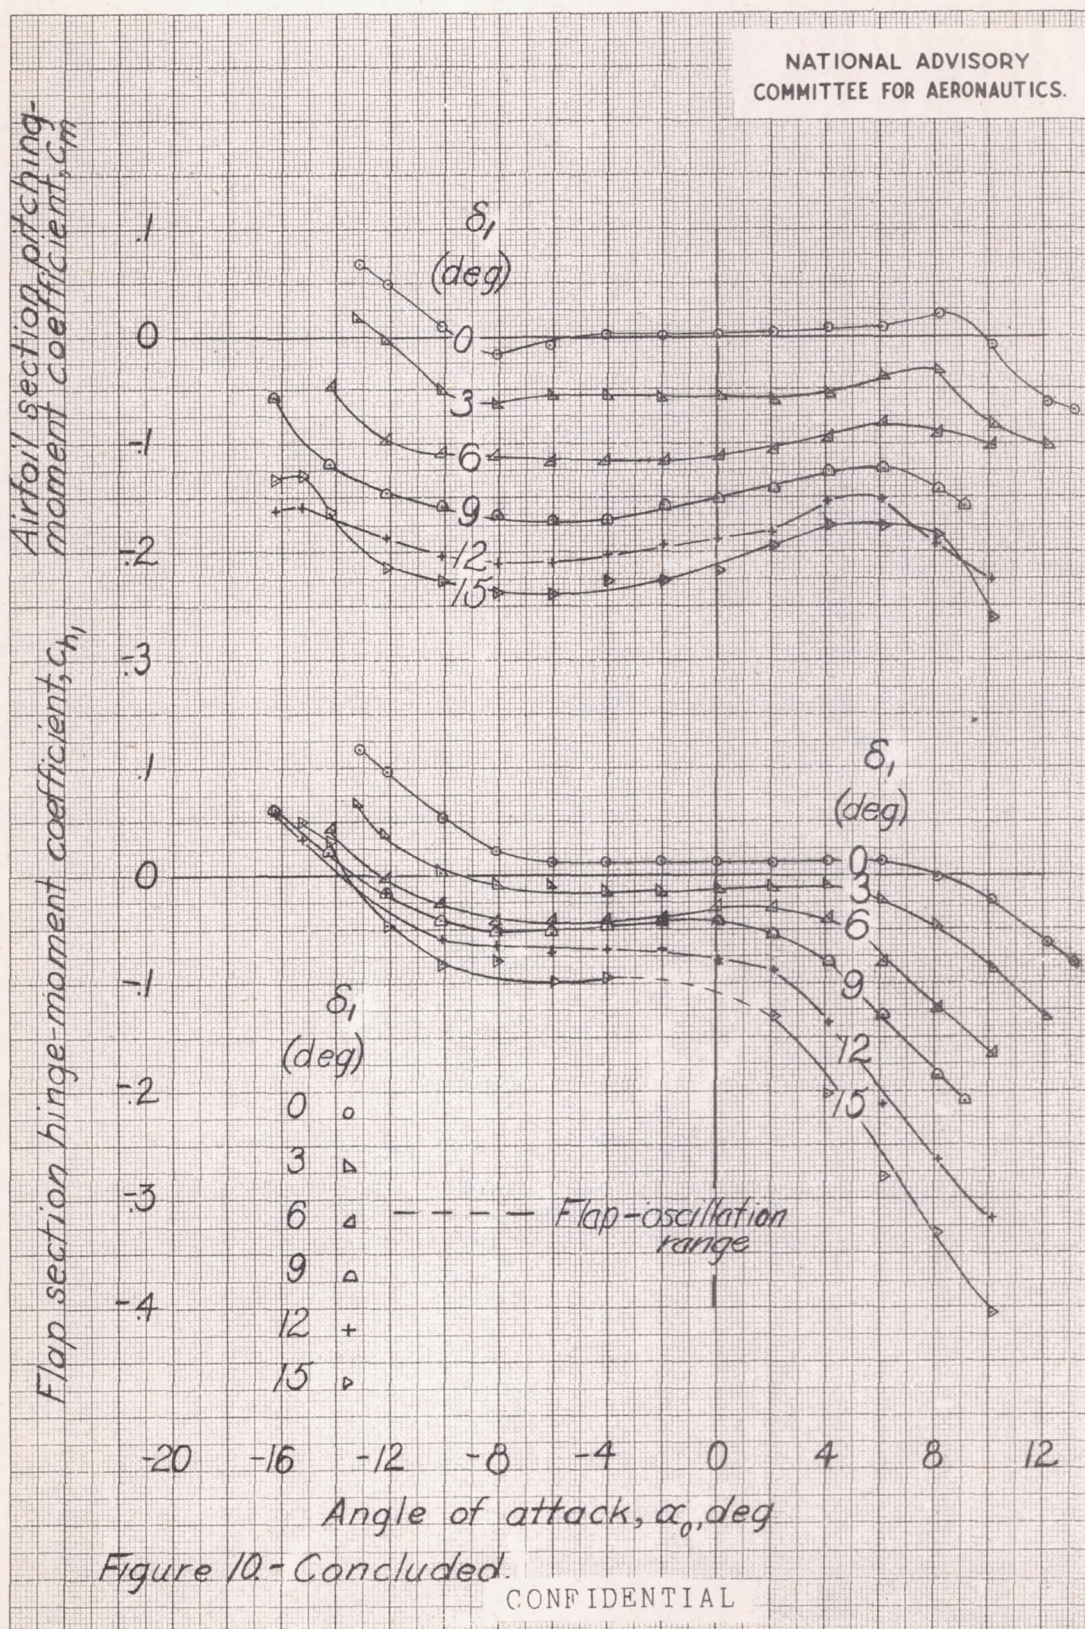 NATIONAL ADVISORY
COMMITTEE FOR AERONAUTICS.
Airfoil section pitching-
moment coefficient, cm
.1
0
-.1
-.2
-.3
δ1
(deg)
0
3
6
9
12
15
Flap section hinge-moment coefficient, ch1
.1
0
-.1
-.2
-.3
-.4
δ1
(deg)
0
3
6
9
12
15
δ1
(deg)
0
3
6
9
12
15
Flap-oscillation
range
-20 -16 -12 -8 -4 0 4 8 12
Angle of attack, α0, deg
Figure 10.- Concluded.
CONFIDENTIAL